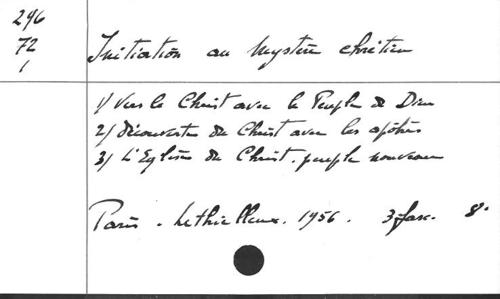 296
72
1
Initiation au Mystère chrétien
1/ Vers le Christ avec le Peuple de Dieu
2/ découverte du Christ avec les apôtres
3/ L'Eglise du Christ. peuple nouveau
Paris. Lethielleux. 1956. 3 fasc. 8°